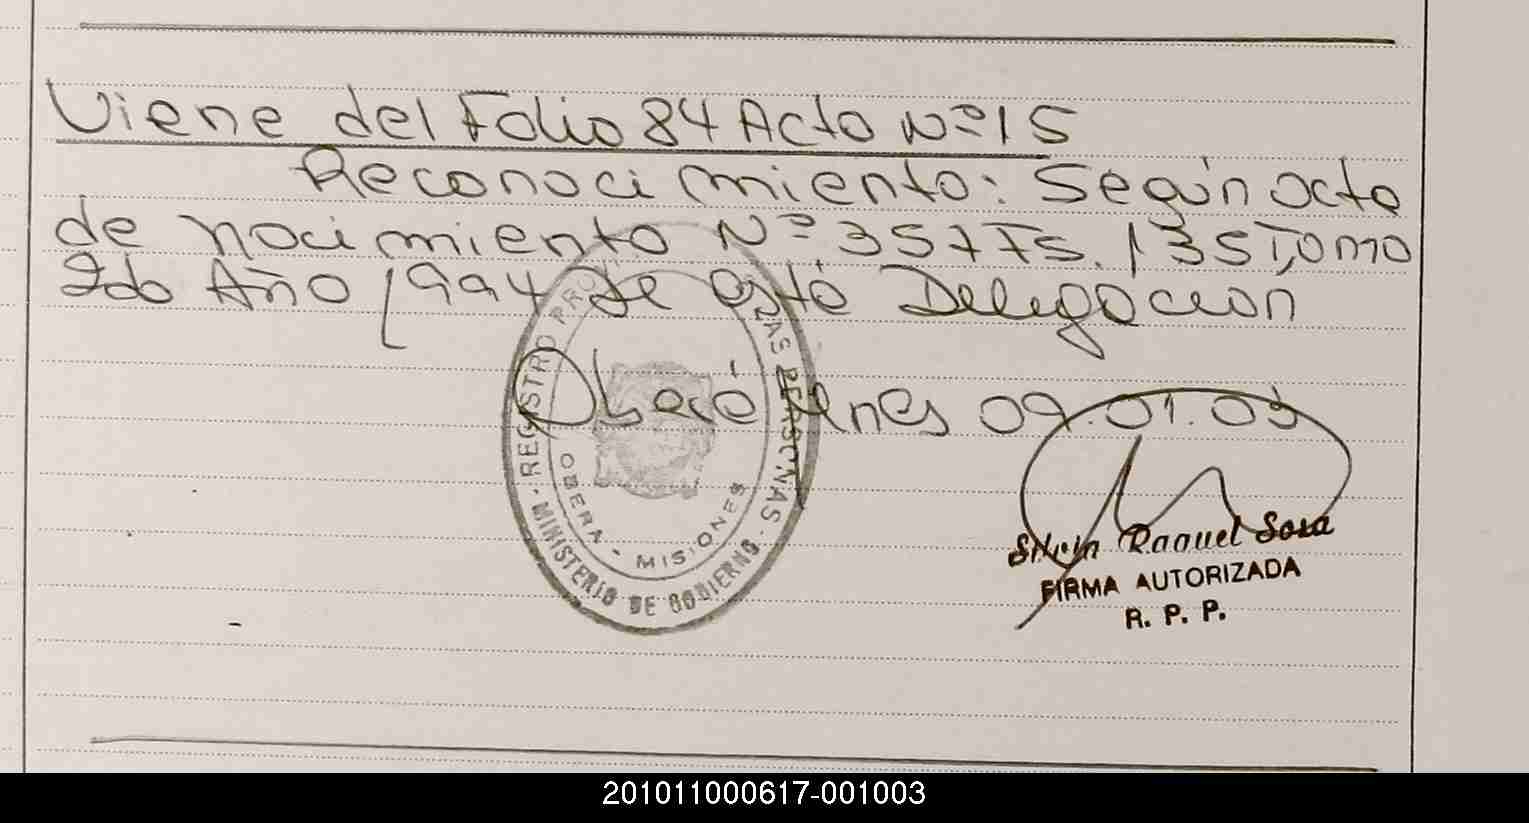 Viene del Folio 84 Acta Nº 15
Reconocimiento: Según acta
de nacimiento Nº 357 Fs. 135 Tomo
2do Año 1994 de esta Delegación
Oberá Mnes 09.01.03
REGISTRO PRO LAS PERSONAS
OBERA - MISIONES
MINISTERIO DE GOBIERNO
Silvia Raquel Sosa
FIRMA AUTORIZADA
R. P. P.
201011000617-001003